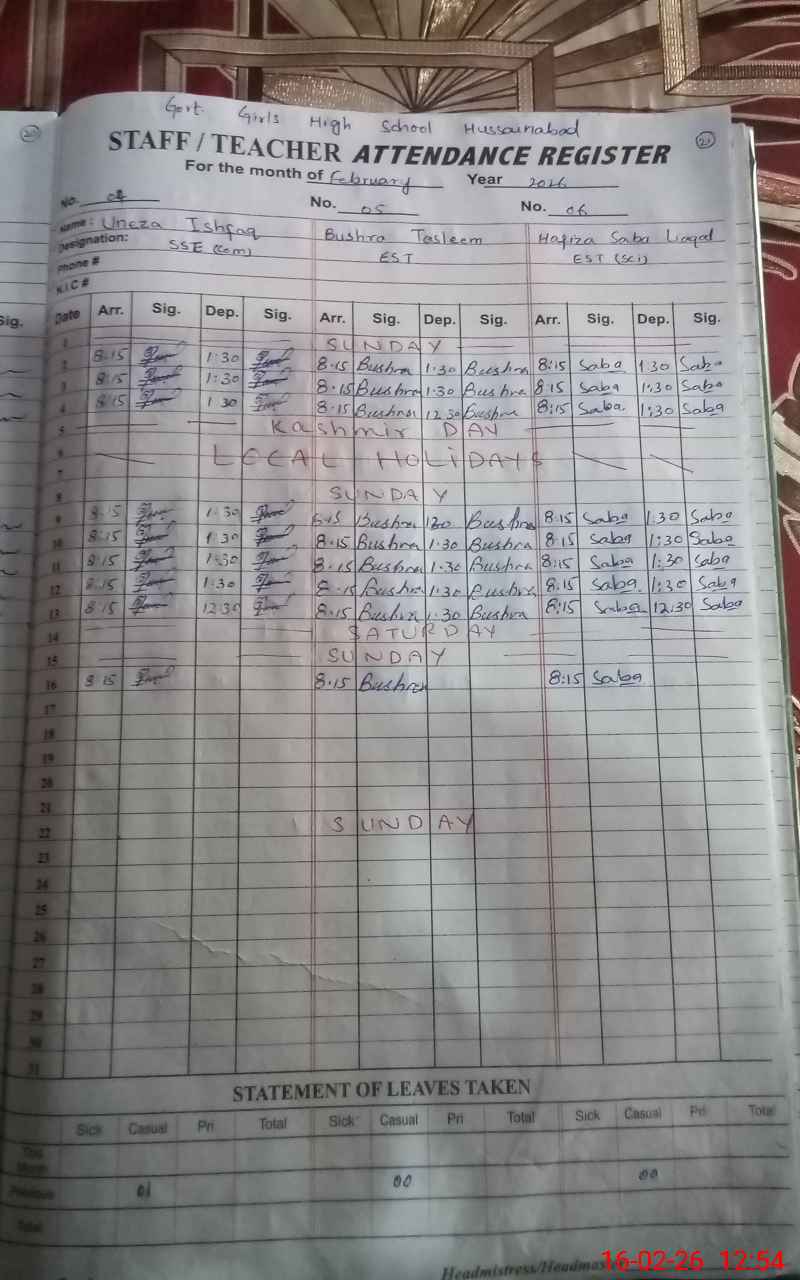 Govt. Girls High School Hussainabad
21
STAFF / TEACHER ATTENDANCE REGISTER
For the month of February Year 2026
No. 04 No. 05 No. 06
Name: Uneza Ishfaq Bushra Tasleem Hafiza Saba Liaqat
Designation: SSE (Com) EST EST (Sci)
Phone #
N.I.C #
Date Arr. Sig. Dep. Sig. Arr. Sig. Dep. Sig. Arr. Sig. Dep. Sig.
1 SUNDAY
2 8:15 1:30 8:15 Bushra 1:30 Bushra 8:15 Saba 1:30 Saba
3 8:15 1:30 8:15 Bushra 1:30 Bushra 8:15 Saba 1:30 Saba
4 8:15 1:30 8:15 Bushra 12:30 Bushra 8:15 Saba 1:30 Saba
5 Kashmir DAY
6 LOCAL HOLIDAYS
7
8 SUNDAY
9 8:15 1:30 8:15 Bushra 1:30 Bushra 8:15 Saba 1:30 Saba
10 8:15 1:30 8:15 Bushra 1:30 Bushra 8:15 Saba 1:30 Saba
11 8:15 1:30 8:15 Bushra 1:30 Bushra 8:15 Saba 1:30 Saba
12 8:15 1:30 8:15 Bushra 1:30 Bushra 8:15 Saba 1:30 Saba
13 8:15 12:30 8:15 Bushra 1:30 Bushra 8:15 Saba 12:30 Saba
14 SATURDAY
15 SUNDAY
16 8:15 8:15 Bushra 8:15 Saba
17
18
19
20
21
22 SUNDAY
23
24
25
26
27
28
29
30
31
STATEMENT OF LEAVES TAKEN
Sick Casual Pri Total Sick Casual Pri Total Sick Casual Pri Total
This Month
Previous 01 00 00
Total
Headmistress/Headmas
16-02-26 12:54